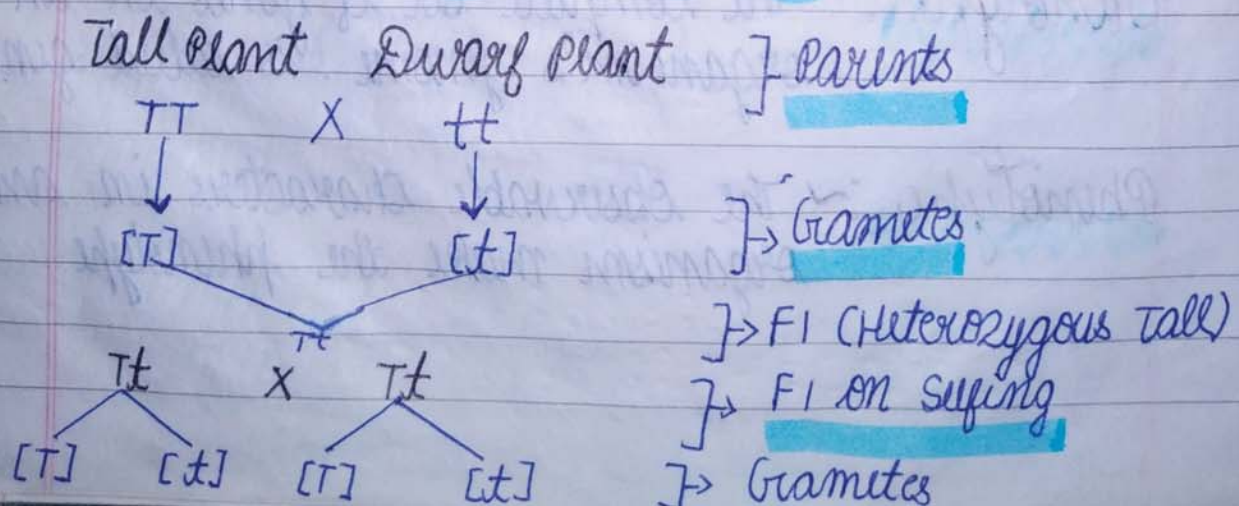 Tall Plant Dwarf Plant ] Parents
TT X tt
[T] [t] ]→ Gametes
Tt ]→ F1 (Heterozygous Tall)
Tt X Tt ]→ F1 on selfing
[T] [t] [T] [t] ]→ Gametes